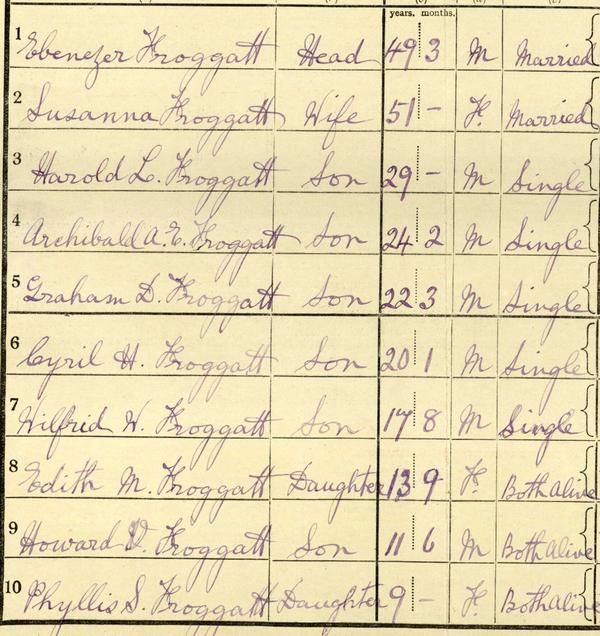 years. months.
1 Ebenezer Froggatt Head 49 3 M Married
2 Susanna Froggatt Wife 51 - F. Married
3 Harold L. Froggatt Son 29 - M Single
4 Archibald A.E. Froggatt Son 24 2 M Single
5 Graham D. Froggatt Son 22 3 M Single
6 Cyril H. Froggatt Son 20 1 M Single
7 Wilfrid W. Froggatt Son 17 8 M Single
8 Edith M. Froggatt Daughter 13 9 F. Both Alive
9 Howard V. Froggatt Son 11 6 M Both Alive
10 Phyllis S. Froggatt Daughter 9 - F. Both alive